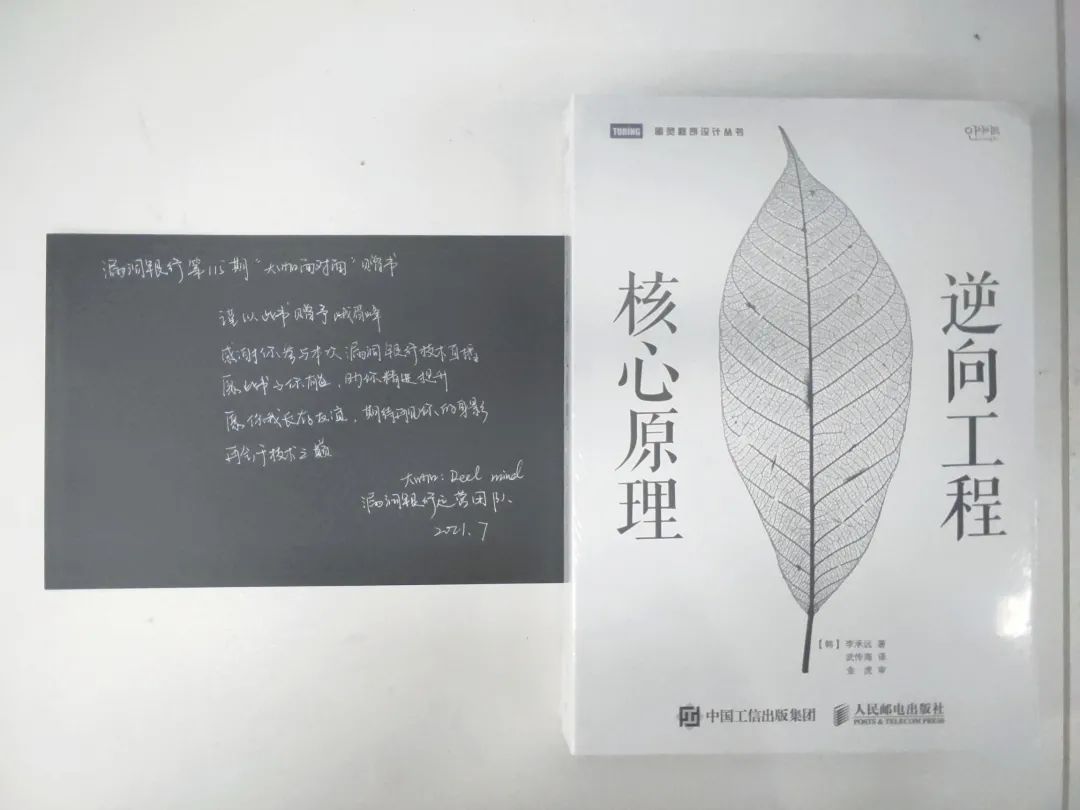 漏洞银行第115期“大咖面对面”赠书
谨以此书赠予峨眉峰
感谢你参与本次漏洞银行技术直播
愿此书与你有益，助你精进提升
愿你我长存友谊，期待再见你的身影
再会于技术之巅
大咖：Reel mind
漏洞银行运营团队
2021.7
TURING 图灵程序设计丛书
逆向工程
核心原理
【韩】李承远 著
武传海 译
金虎 审
中国工信出版集团
人民邮电出版社
POSTS & TELECOM PRESS